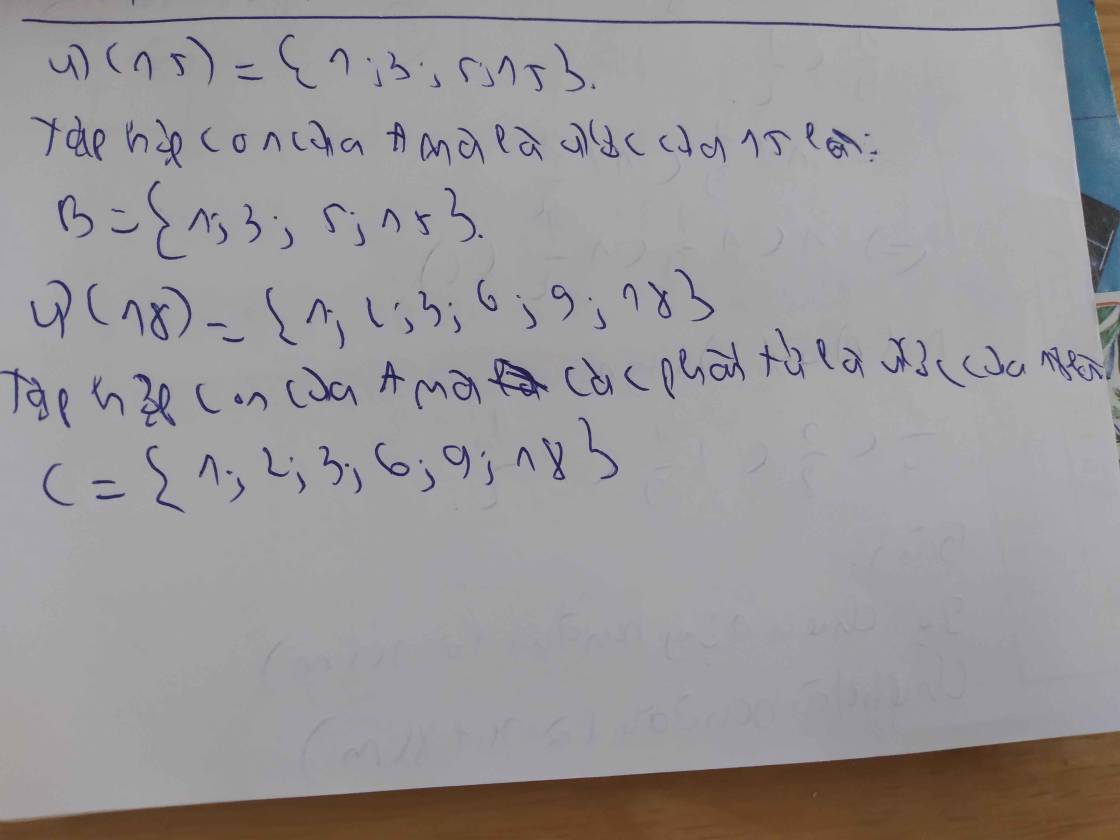 Ư(15) = {1; 3; 5; 15}.
Tập hợp con của A mà là ước của 15 là:
B = {1; 3; 5; 15}.
Ư(18) = {1; 2; 3; 6; 9; 18}
Tập hợp con của A mà các phần tử là ước của 18 là
C = {1; 2; 3; 6; 9; 18}